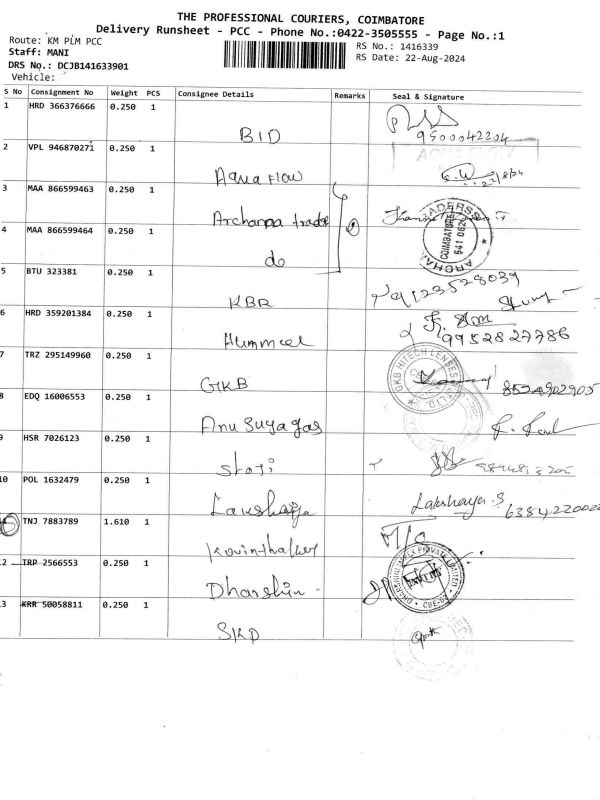 THE PROFESSIONAL COURIERS, COIMBATORE
Delivery Runsheet - PCC - Phone No.:0422-3505555 - Page No.:1
Route: KM PLM PCC
Staff: MANI
DRS No.: DCJB141633901
Vehicle:
RS No.: 1416339
RS Date: 22-Aug-2024
S No Consignment No Weight PCS Consignee Details Remarks Seal & Signature
1 HRD 366376666 0.250 1
BID 9500042204
2 VPL 946870271 0.250 1
AQUA FLOW
Aqua Flow 22/8/24
3 MAA 866599463 0.250 1
Archanna trades
4 MAA 866599464 0.250 1
do
COIMBATORE
5 BTU 323381 0.250 1
KBR 9123528039
6 HRD 359201384 0.250 1
Hummel 9952827786
7 TRZ 295149960 0.250 1
GKB 8524902905
GKB HITECH LENSES
8 EDQ 16006553 0.250 1
Anu Suya gas
9 HSR 7026123 0.250 1
10 POL 1632479 0.250 1
Lakshaya Lakshaya.S
TNJ 7883789 1.610 1
M/C
2 TRP 2566553 0.250 1
Dharshin
PRIVATE LIMITED
3 KRR 50058811 0.250 1
SKD